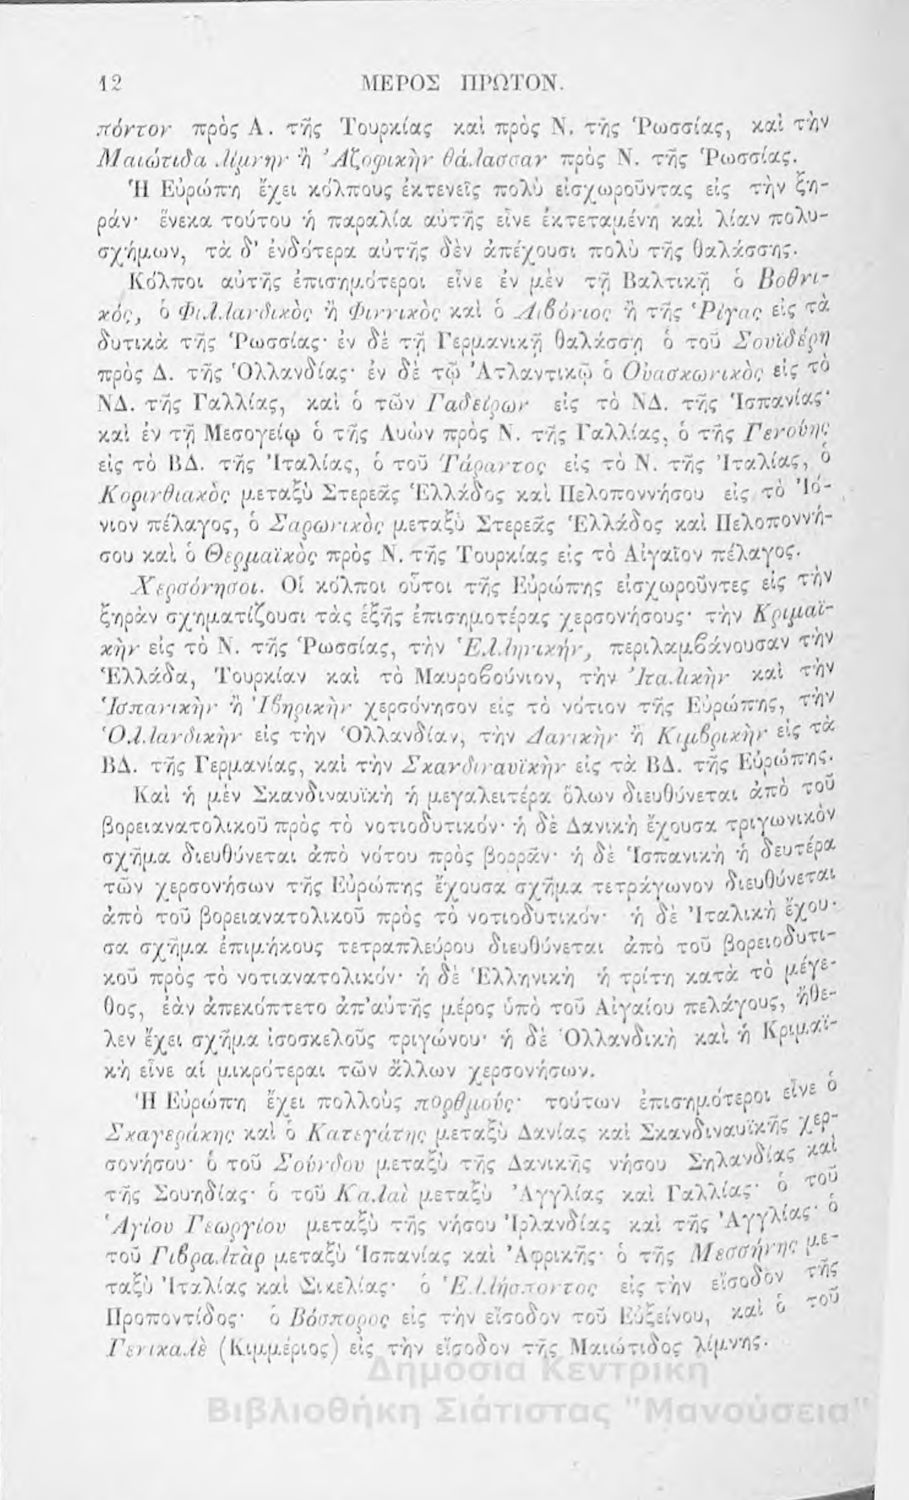 12 ΜΕΡΟΣ ΠΡΩΤΟΝ.
πόντον πρὸς Α. τῆς Τουρκίας καὶ πρὸς Ν. τῆς Ῥωσσίας, καὶ τὴν
Μαιώτιδα λίμνην ἢ Ἀζοφικὴν θάλασσαν πρὸς Ν. τῆς Ῥωσσίας.
Ἡ Εὐρώπη ἔχει κόλπους ἐκτενεῖς πολὺ εἰσχωροῦντας εἰς τὴν ξη-
ράν· ἕνεκα τούτου ἡ παραλία αὐτῆς εἶνε ἐκτεταμένη καὶ λίαν πολυ-
σχήμων, τὰ δ' ἐνδότερα αὐτῆς δὲν ἀπέχουσι πολὺ τῆς θαλάσσης.
Κόλποι αὐτῆς ἐπισημότεροι εἶνε ἐν μὲν τῇ Βαλτικῇ ὁ Βοθνι-
κός, ὁ Φιλλανδικὸς ἢ Φιννικὸς καὶ ὁ Λιβόνιος ἢ τῆς Ῥίγας εἰς τὰ
δυτικὰ τῆς Ῥωσσίας· ἐν δὲ τῇ Γερμανικῇ θαλάσσῃ ὁ τοῦ Σουϊδέρη
πρὸς Δ. τῆς Ὁλλανδίας· ἐν δὲ τῷ Ἀτλαντικῷ ὁ Οὐασκωνικὸς εἰς τὸ
ΝΔ. τῆς Γαλλίας, καὶ ὁ τῶν Γαδείρων εἰς τὸ ΝΔ. τῆς Ἱσπανίας·
καὶ ἐν τῇ Μεσογείῳ ὁ τῆς Λυὼν πρὸς Ν. τῆς Γαλλίας, ὁ τῆς Γενούης
εἰς τὸ ΒΔ. τῆς Ἰταλίας, ὁ τοῦ Τάραντος εἰς τὸ Ν. τῆς Ἰταλίας, ὁ
Κορινθιακὸς μεταξὺ Στερεᾶς Ἑλλάδος καὶ Πελοποννήσου εἰς τὸ Ἰό-
νιον πέλαγος, ὁ Σαρωνικὸς μεταξὺ Στερεᾶς Ἑλλάδος καὶ Πελοποννή-
σου καὶ ὁ Θερμαϊκὸς πρὸς Ν. τῆς Τουρκίας εἰς τὸ Αἰγαῖον πέλαγος.
Χερσόνησοι. Οἱ κόλποι οὗτοι τῆς Εὐρώπης εἰσχωροῦντες εἰς τὴν
ξηρὰν σχηματίζουσι τὰς ἑξῆς ἐπισημοτέρας χερσονήσους· τὴν Κριμαϊ-
κὴν εἰς τὸ Ν. τῆς Ῥωσσίας, τὴν Ἑλληνικήν, περιλαμβάνουσαν τὴν
Ἑλλάδα, Τουρκίαν καὶ τὸ Μαυροβούνιον, τὴν Ἰταλικὴν καὶ τὴν
Ἱσπανικὴν ἢ Ἰβηρικὴν χερσόνησον εἰς τὸ νότιον τῆς Εὐρώπης, τὴν
Ὁλλανδικὴν εἰς τὴν Ὁλλανδίαν, τὴν Δανικὴν ἢ Κιμβρικὴν εἰς τὰ
ΒΔ. τῆς Γερμανίας, καὶ τὴν Σκανδιναυϊκὴν εἰς τὰ ΒΔ. τῆς Εὐρώπης.
Καὶ ἡ μὲν Σκανδιναυϊκὴ ἡ μεγαλειτέρα ὅλων διευθύνεται ἀπὸ τοῦ
βορειανατολικοῦ πρὸς τὸ νοτιοδυτικόν· ἡ δὲ Δανικὴ ἔχουσα τριγωνικὸν
σχῆμα διευθύνεται ἀπὸ νότου πρὸς βορρᾶν· ἡ δὲ Ἱσπανικὴ ἡ δευτέρα
τῶν χερσονήσων τῆς Εὐρώπης ἔχουσα σχῆμα τετράγωνον διευθύνεται
ἀπὸ τοῦ βορειανατολικοῦ πρὸς τὸ νοτιοδυτικόν· ἡ δὲ Ἰταλικὴ ἔχου-
σα σχῆμα ἐπιμήκους τετραπλεύρου διευθύνεται ἀπὸ τοῦ βορειοδυτι-
κοῦ πρὸς τὸ νοτιανατολικόν· ἡ δὲ Ἑλληνικὴ ἡ τρίτη κατὰ τὸ μέγε-
θος, ἐὰν ἀπεκόπτετο ἀπ' αὐτῆς μέρος ὑπὸ τοῦ Αἰγαίου πελάγους, ἤθε-
λεν ἔχει σχῆμα ἰσοσκελοῦς τριγώνου· ἡ δὲ Ὁλλανδικὴ καὶ ἡ Κριμαϊ-
κὴ εἶνε αἱ μικρότεραι τῶν ἄλλων χερσονήσων.
Ἡ Εὐρώπη ἔχει πολλοὺς πορθμούς· τούτων ἐπισημότεροι εἶνε ὁ
Σκαγεράκης καὶ ὁ Κατεγάτης μεταξὺ Δανίας καὶ Σκανδιναυϊκῆς χερ-
σονήσου· ὁ τοῦ Σούνδου μεταξὺ τῆς Δανικῆς νήσου Σηλανδίας καὶ
τῆς Σουηδίας· ὁ τοῦ Καλαὶ μεταξὺ Ἀγγλίας καὶ Γαλλίας· ὁ τοῦ
Ἁγίου Γεωργίου μεταξὺ τῆς νήσου Ἰρλανδίας καὶ τῆς Ἀγγλίας· ὁ
τοῦ Γιβραλτὰρ μεταξὺ Ἱσπανίας καὶ Ἀφρικῆς· ὁ τῆς Μεσσήνης με-
ταξὺ Ἰταλίας καὶ Σικελίας· ὁ Ἑλλήσποντος εἰς τὴν εἴσοδον τῆς
Προποντίδος· ὁ Βόσπορος εἰς τὴν εἴσοδον τοῦ Εὐξείνου, καὶ ὁ τοῦ
Γενικαλὲ (Κιμμέριος) εἰς τὴν εἴσοδον τῆς Μαιώτιδος λίμνης.
Δημόσια Κεντρική
Βιβλιοθήκη Σιάτιστας "Μανούσεια"